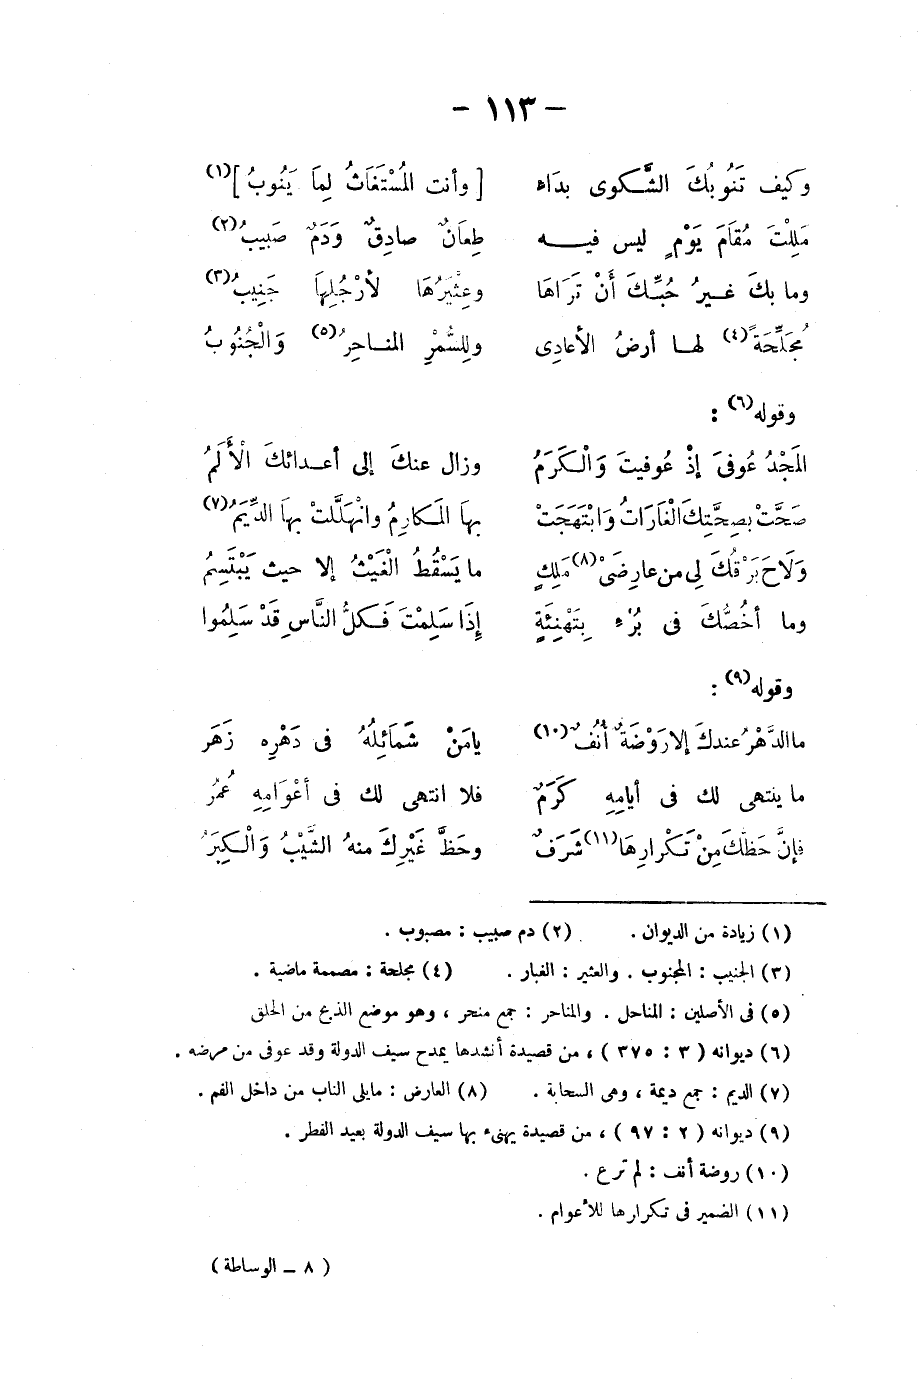 – ١١٣ –
وكيف تَنُوبُكَ الشَّكوى بدَاء [ وأنت المُسْتَغَاثُ لِمَا يَنُوبُ ](١)
مَلِلْتَ مُقَامَ يَوْمٍ ليس فيه طِعَانٌ صادِقٌ وَدَمٌ صَبِيبُ(٢)
وما بكَ غيرُ حُبِّكَ أَنْ تَرَاهَا وعِثْيَرُهَا لأَرْجُلِهَا جَنِيبُ(٣)
مُجَلِّحَةً(٤) لها أرضُ الأعادِى وللِسُّمْرِ المناحِرُ(٥) وَالْجُنُوبُ
وقوله(٦) :
المَجْدُ عُوفىَ إذْ عُوفيتَ وَالْكَرَمُ وزال عنكَ إلى أعدائكَ الْأَلَمُ
صَحَّتْ بِصِحَّتِكَ الْغَارَاتُ وَابْتَهَجَتْ بهَا المَكَارِمُ وانْهَلَّتْ بهَا الدِّيَمُ(٧)
وَلَاحَ بَرْقُكَ لِى من عارِضَىْ(٨) مَلِكٍ ما يَسْقُطُ الْغَيْثُ إلا حيث يَبْتَسِمُ
وما أخُصُّكَ فى بُرْءٍ بِتَهْنِئَةٍ إِذَا سَلِمْتَ فَكلُّ النَّاسِ قَدْ سَلِمُوا
وقوله(٩) :
ما الدَّهْرُ عندكَ إلا رَوْضَةٌ أُنُفٌ(١٠) يا مَنْ شَمَائِلُهُ فى دَهْرِه زَهَر
ما ينتهى لك فى أيامِهِ كَرَمٌ فلا انتهى لك فى أعْوَامِهِ عُمُرُ
فإنَّ حَظَّكَ مِنْ تَكْرارِهَا(١١) شَرَفٌ وحَظَّ غَيْرِكَ منهُ الشَّيْبُ وَالْكِبَرُ
(١) زيادة من الديوان . (٢) دم صبيب : مصبوب .
(٣) الجنيب : المجنوب . والعثير : الغبار . (٤) مجلحة : مصممة ماضية .
(٥) فى الأصلين : المناحل . والمناحر : جمع منحر ، وهو موضع الذبح من الحلق
(٦) ديوانه ( ٣ : ٣٧٥ ) ، من قصيدة أنشدها يمدح سيف الدولة وقد عوفى من مرضه .
(٧) الديم : جمع ديمة ، وهى السحابة . (٨) العارض : مايلى الناب من داخل الفم .
(٩) ديوانه ( ٢ : ٩٧ ) ، من قصيدة يهنىء بها سيف الدولة بعيد الفطر .
(١٠) روضة أنف : لم ترع .
(١١) الضمير فى تكرارها للأعوام .
( ٨ – الوساطة )